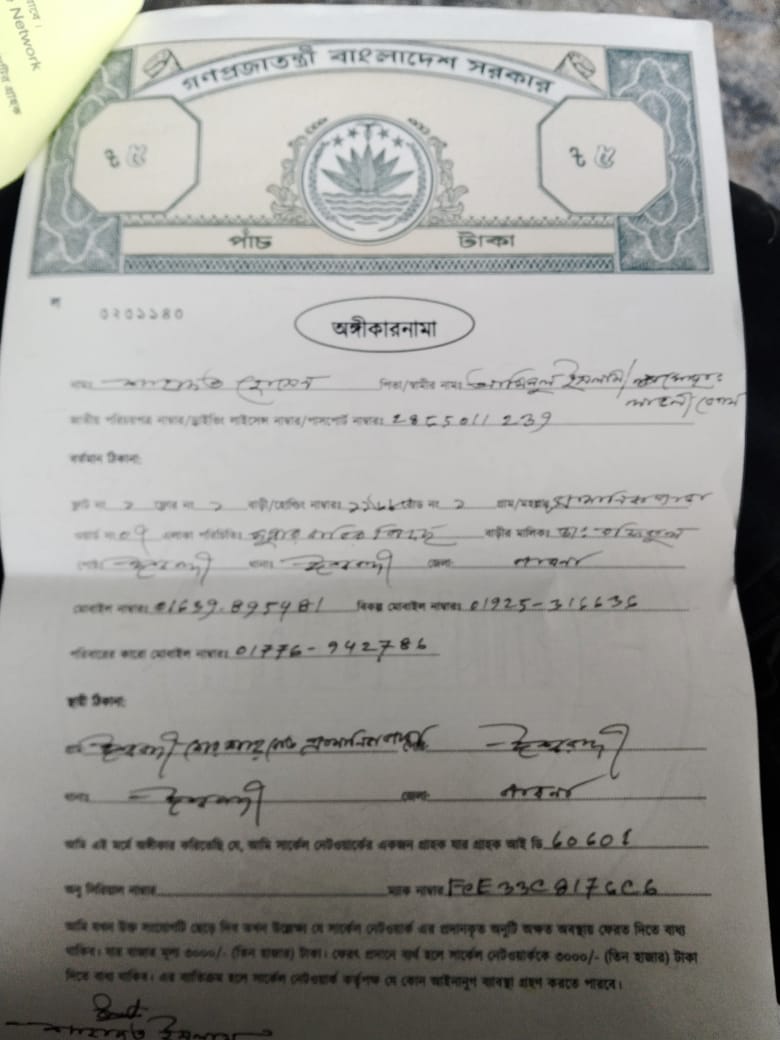 Network
গণপ্রজাতন্ত্রী বাংলাদেশ সরকার
৳ ৫ ৳ ৫
পাঁচ টাকা
০২০১১৪০
অঙ্গীকারনামা
নামঃ হোসেন পিতা/স্বামীর নামঃ আমিনুল ইসলাম/
জাতীয় পরিচয়পত্র নাম্বার/ড্রাইভিং লাইসেন্স নাম্বার/পাসপোর্ট নাম্বারঃ 2855011239
বর্তমান ঠিকানা:
ফ্লাট নং ১ ফ্লোর নং ১ বাড়ী/হোল্ডিং নাম্বারঃ রোড নং ১ গ্রাম/মহল্লাঃ
ওয়ার্ড নং ০৭ এলাকা পরিচিতিঃ বাড়ীর মালিকঃ
পোষ্টঃ ঈশ্বরদী থানাঃ ঈশ্বরদী জেলাঃ পাবনা
মোবাইল নাম্বারঃ 01639-895481 বিকল্প মোবাইল নাম্বারঃ 01925-316636
পরিবারের কারো মোবাইল নাম্বারঃ 01776-942786
স্থায়ী ঠিকানা:
ঈশ্বরদী ঈশ্বরদী
থানাঃ ঈশ্বরদী জেলাঃ পাবনা
আমি এই মর্মে অঙ্গীকার করিতেছি যে, আমি সার্কেল নেটওয়ার্কের একজন গ্রাহক যার গ্রাহক আই ডি 60601
অনু সিরিয়াল নাম্বার ম্যাক নাম্বার FeE33C8176C6
আমি যখন উক্ত সংযোগটি ছেড়ে দিব তখন উল্লেখ্য যে সার্কেল নেটওয়ার্ক এর প্রদানকৃত অনুটি অক্ষত অবস্থায় ফেরত দিতে বাধ্য
থাকিব। যার বাজার মূল্য ৩০০০/- (তিন হাজার) টাকা। ফেরৎ প্রদানে ব্যর্থ হলে সার্কেল নেটওয়ার্ককে ৩০০০/- (তিন হাজার) টাকা
দিতে বাধ্য থাকিব। এর ব্যতিক্রম হলে সার্কেল নেটওয়ার্ক কর্তৃপক্ষ যে কোন আইনানুগ ব্যবস্থা গ্রহণ করতে পারবে।